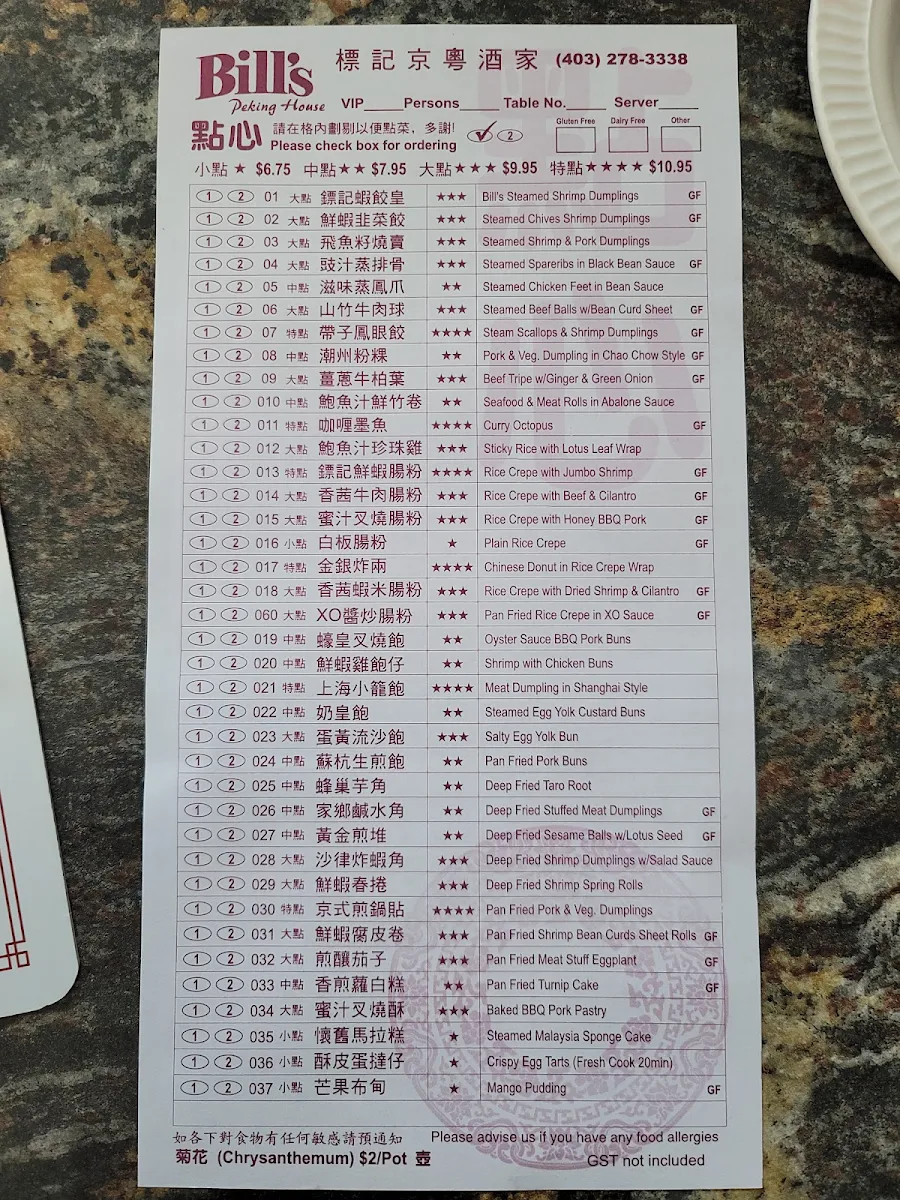 Bill's 標記京粵酒家 (403) 278-3338
Peking House VIP_____Persons_____ Table No._____ Server_____
點心 請在格內劃剔以便點菜，多謝! ✓ 2 Gluten Free Dairy Free Other
Please check box for ordering
小點 ★ $6.75 中點★★ $7.95 大點★★★ $9.95 特點★★★★ $10.95
1 2 01 大點 鏢記蝦餃皇 ★★★ Bill's Steamed Shrimp Dumplings GF
1 2 02 大點 鮮蝦韭菜餃 ★★★ Steamed Chives Shrimp Dumplings GF
1 2 03 大點 飛魚籽燒賣 ★★★ Steamed Shrimp & Pork Dumplings
1 2 04 大點 豉汁蒸排骨 ★★★ Steamed Spareribs in Black Bean Sauce GF
1 2 05 中點 滋味蒸鳳爪 ★★ Steamed Chicken Feet in Bean Sauce
1 2 06 大點 山竹牛肉球 ★★★ Steamed Beef Balls w/Bean Curd Sheet GF
1 2 07 特點 帶子鳳眼餃 ★★★★ Steam Scallops & Shrimp Dumplings GF
1 2 08 中點 潮州粉粿 ★★ Pork & Veg. Dumpling in Chao Chow Style GF
1 2 09 大點 薑蔥牛柏葉 ★★★ Beef Tripe w/Ginger & Green Onion GF
1 2 010 中點 鮑魚汁鮮竹卷 ★★ Seafood & Meat Rolls in Abalone Sauce
1 2 011 特點 咖喱墨魚 ★★★★ Curry Octopus GF
1 2 012 大點 鮑魚汁珍珠雞 ★★★ Sticky Rice with Lotus Leaf Wrap
1 2 013 特點 鏢記鮮蝦腸粉 ★★★★ Rice Crepe with Jumbo Shrimp GF
1 2 014 大點 香茜牛肉腸粉 ★★★ Rice Crepe with Beef & Cilantro GF
1 2 015 大點 蜜汁叉燒腸粉 ★★★ Rice Crepe with Honey BBQ Pork GF
1 2 016 小點 白板腸粉 ★ Plain Rice Crepe GF
1 2 017 特點 金銀炸兩 ★★★★ Chinese Donut in Rice Crepe Wrap
1 2 018 大點 香茜蝦米腸粉 ★★★ Rice Crepe with Dried Shrimp & Cilantro GF
1 2 060 大點 XO醬炒腸粉 ★★★ Pan Fried Rice Crepe in XO Sauce GF
1 2 019 中點 蠔皇叉燒飽 ★★ Oyster Sauce BBQ Pork Buns
1 2 020 中點 鮮蝦雞飽仔 ★★ Shrimp with Chicken Buns
1 2 021 特點 上海小籠飽 ★★★★ Meat Dumpling in Shanghai Style
1 2 022 中點 奶皇飽 ★★ Steamed Egg Yolk Custard Buns
1 2 023 大點 蛋黃流沙飽 ★★★ Salty Egg Yolk Bun
1 2 024 中點 蘇杭生煎飽 ★★ Pan Fried Pork Buns
1 2 025 中點 蜂巢芋角 ★★ Deep Fried Taro Root
1 2 026 中點 家鄉鹹水角 ★★ Deep Fried Stuffed Meat Dumplings GF
1 2 027 中點 黃金煎堆 ★★ Deep Fried Sesame Balls w/Lotus Seed GF
1 2 028 大點 沙律炸蝦角 ★★★ Deep Fried Shrimp Dumplings w/Salad Sauce
1 2 029 大點 鮮蝦春捲 ★★★ Deep Fried Shrimp Spring Rolls
1 2 030 特點 京式煎鍋貼 ★★★★ Pan Fried Pork & Veg. Dumplings
1 2 031 大點 鮮蝦腐皮卷 ★★★ Pan Fried Shrimp Bean Curds Sheet Rolls GF
1 2 032 大點 煎釀茄子 ★★★ Pan Fried Meat Stuff Eggplant GF
1 2 033 中點 香煎蘿白糕 ★★ Pan Fried Turnip Cake GF
1 2 034 大點 蜜汁叉燒酥 ★★★ Baked BBQ Pork Pastry
1 2 035 小點 懷舊馬拉糕 ★ Steamed Malaysia Sponge Cake
1 2 036 小點 酥皮蛋撻仔 ★ Crispy Egg Tarts (Fresh Cook 20min)
1 2 037 小點 芒果布甸 ★ Mango Pudding GF
如各下對食物有任何敏感請預通知 Please advise us if you have any food allergies
菊花 (Chrysanthemum) $2/Pot 壺 GST not included